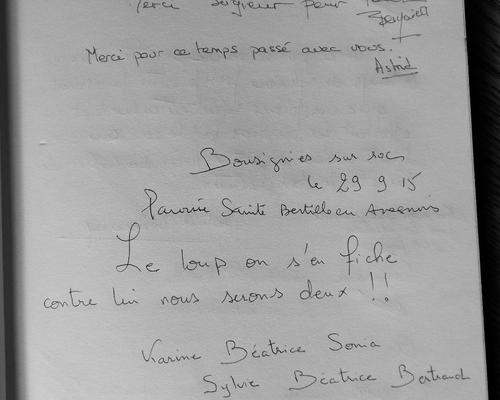 Merci Seigneur pour
Merci pour ce temps passé avec vous.
Astrid
Bousignies sur roc
le 29 9 15
Paroisse Sainte Bertille en Avesnois
Le loup on s'en fiche
contre lui nous serons deux !!
Karine Béatrice Sonia
Sylvie Béatrice Bertrand